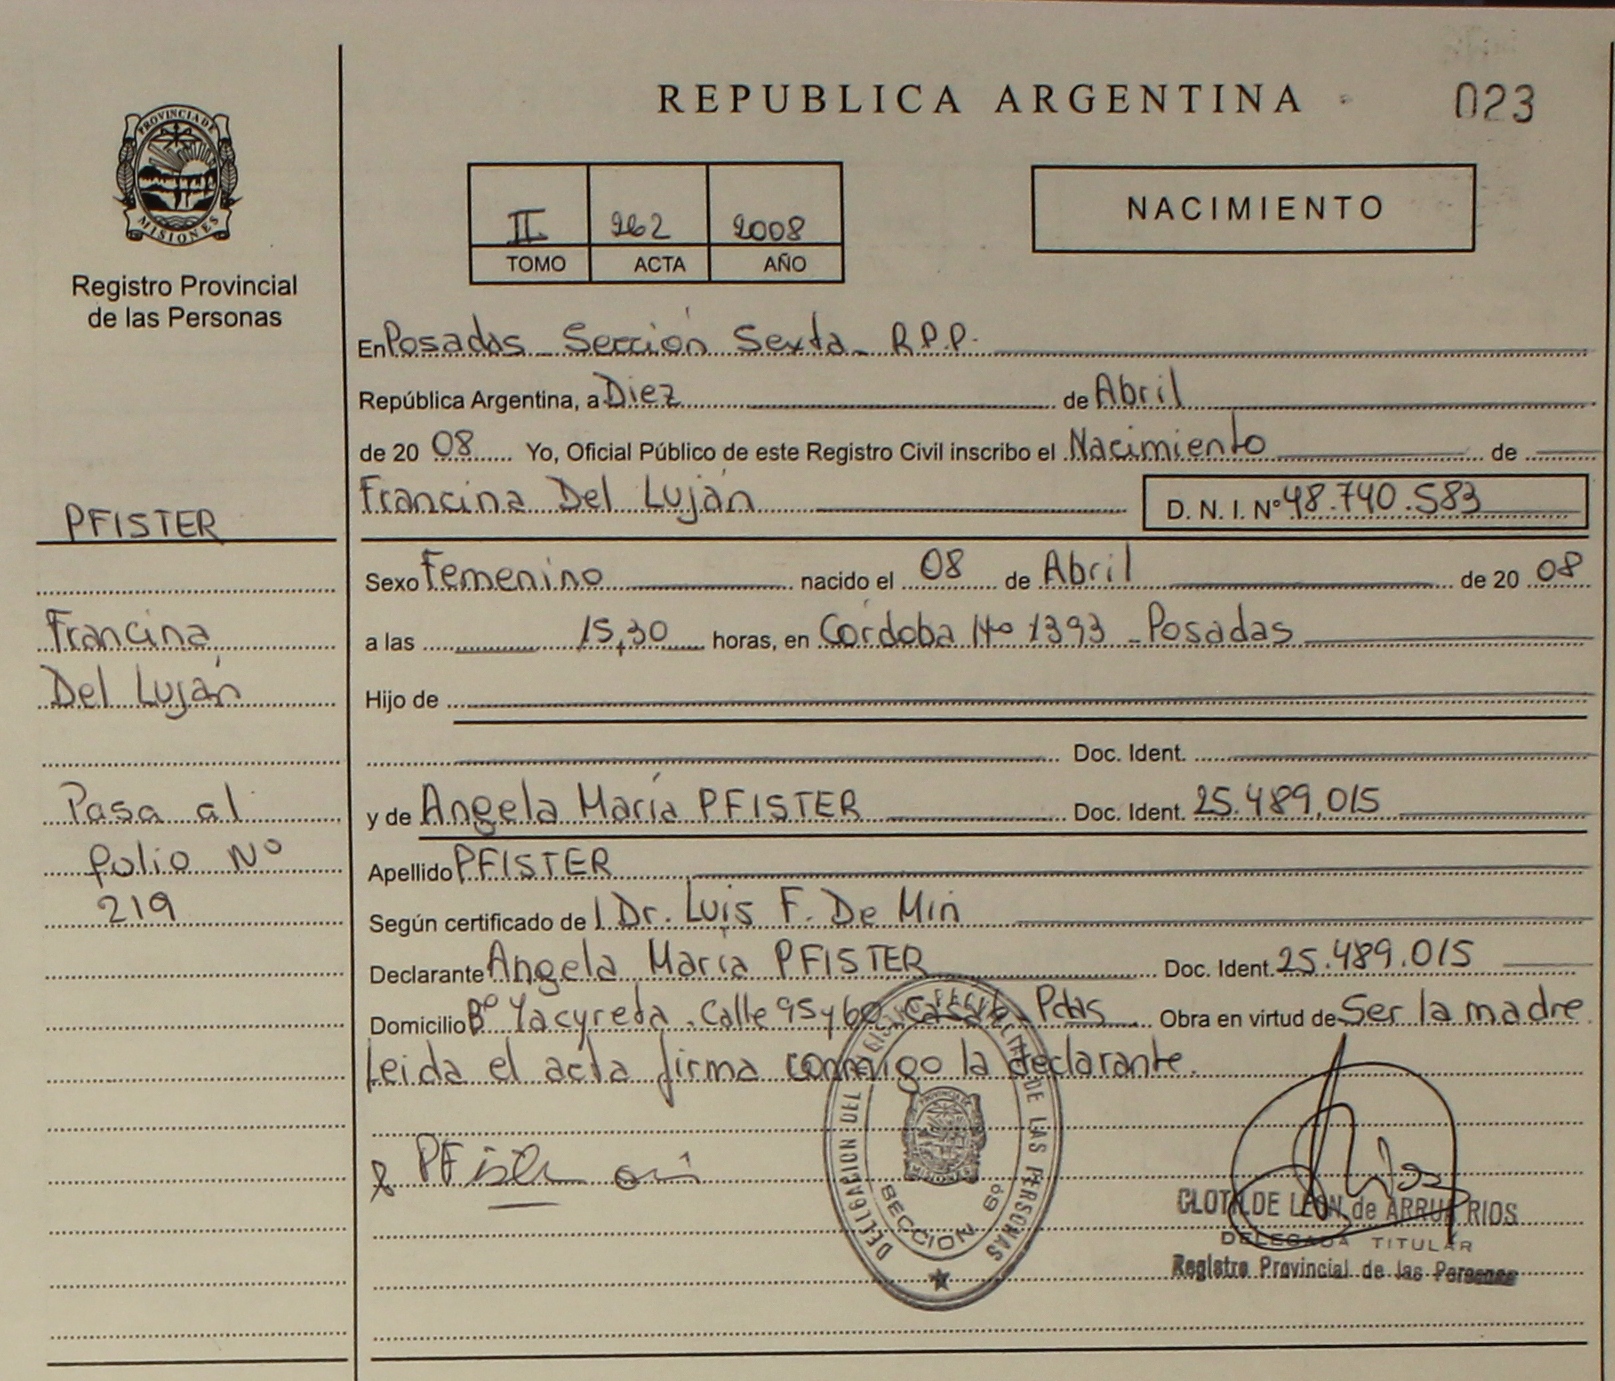 REPUBLICA ARGENTINA
023
PROVINCIA DE
MISIONES
Registro Provincial
de las Personas
II 262 2008
TOMO ACTA AÑO
NACIMIENTO
En Posadas Sección Sexta R.P.P.
República Argentina, a Diez de Abril
de 20 08 Yo, Oficial Público de este Registro Civil inscribo el Nacimiento de
Francina Del Luján D. N. I. Nº 48.740.583
PFISTER
Francina
Del Luján
Pasa al
folio Nº
219
Sexo Femenino nacido el 08 de Abril de 20 08
a las 15,30 horas, en Córdoba Nº 1393 - Posadas
Hijo de
Doc. Ident.
y de Angela María PFISTER Doc. Ident. 25.489.015
Apellido PFISTER
Según certificado de l Dr. Luis F. De Min
Declarante Angela María PFISTER Doc. Ident. 25.489.015
Domicilio Bº Yacyreta. Calle 95 y 60 Pdas Obra en virtud de Ser la madre
Leida el acta firma conmigo la declarante.
PFister
DELEGACION DEL REGISTRO PROVINCIAL DE LAS PERSONAS
SECCION 6º
CLOTILDE LEON de ARRUA RIOS
DELEGADA TITULAR
Registro Provincial de las Personas